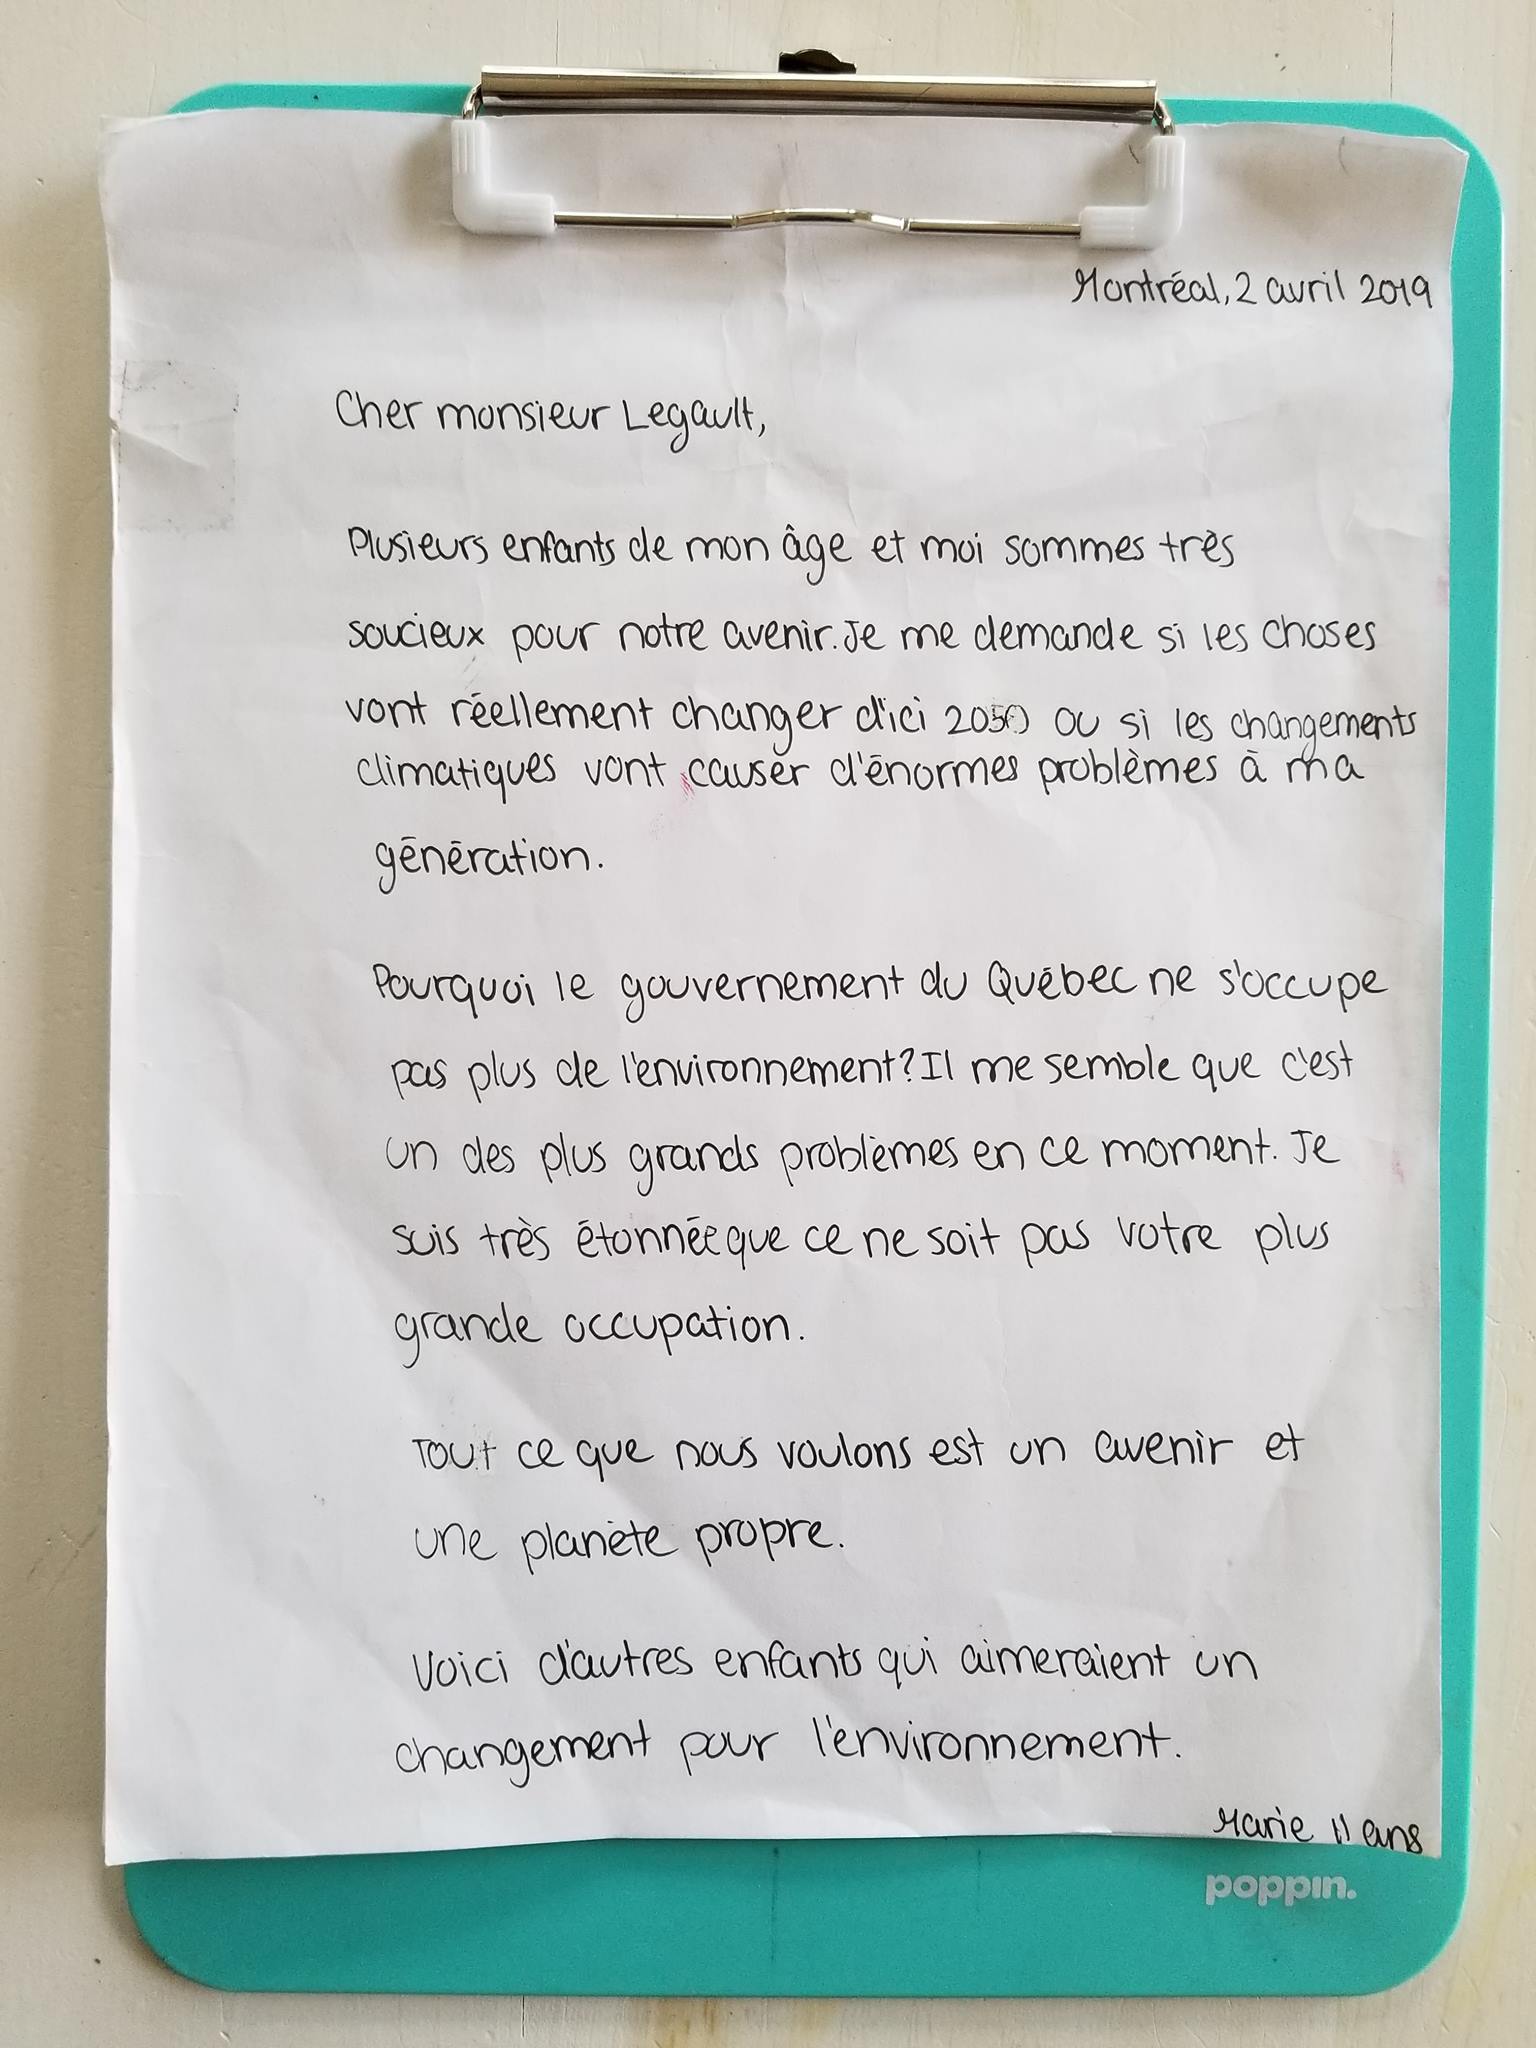 Montréal, 2 avril 2019
Cher monsieur Legault,
Plusieurs enfants de mon âge et moi sommes très
soucieux pour notre avenir. Je me demande si les choses
vont réellement changer d'ici 2050 ou si les changements
climatiques vont causer d'énormes problèmes à ma
génération.
Pourquoi le gouvernement du Québec ne s'occupe
pas plus de l'environnement? Il me semble que c'est
un des plus grands problèmes en ce moment. Je
suis très étonnée que ce ne soit pas votre plus
grande occupation.
Tout ce que nous voulons est un avenir et
une planète propre.
Voici d'autres enfants qui aimeraient un
changement pour l'environnement.
Marie 11 ans
poppin.